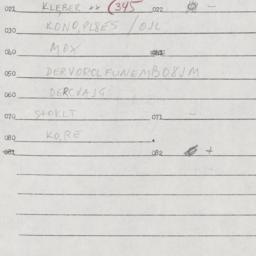 021 KLEBER ** (345 022 -
030 KONO, PL8ES / OJL
040 MDX
050 DERVOROLFUNEMBO8JM
060 DERCVAJG
070 SHOKLT 071 -
080 KO, BE
081 082 +